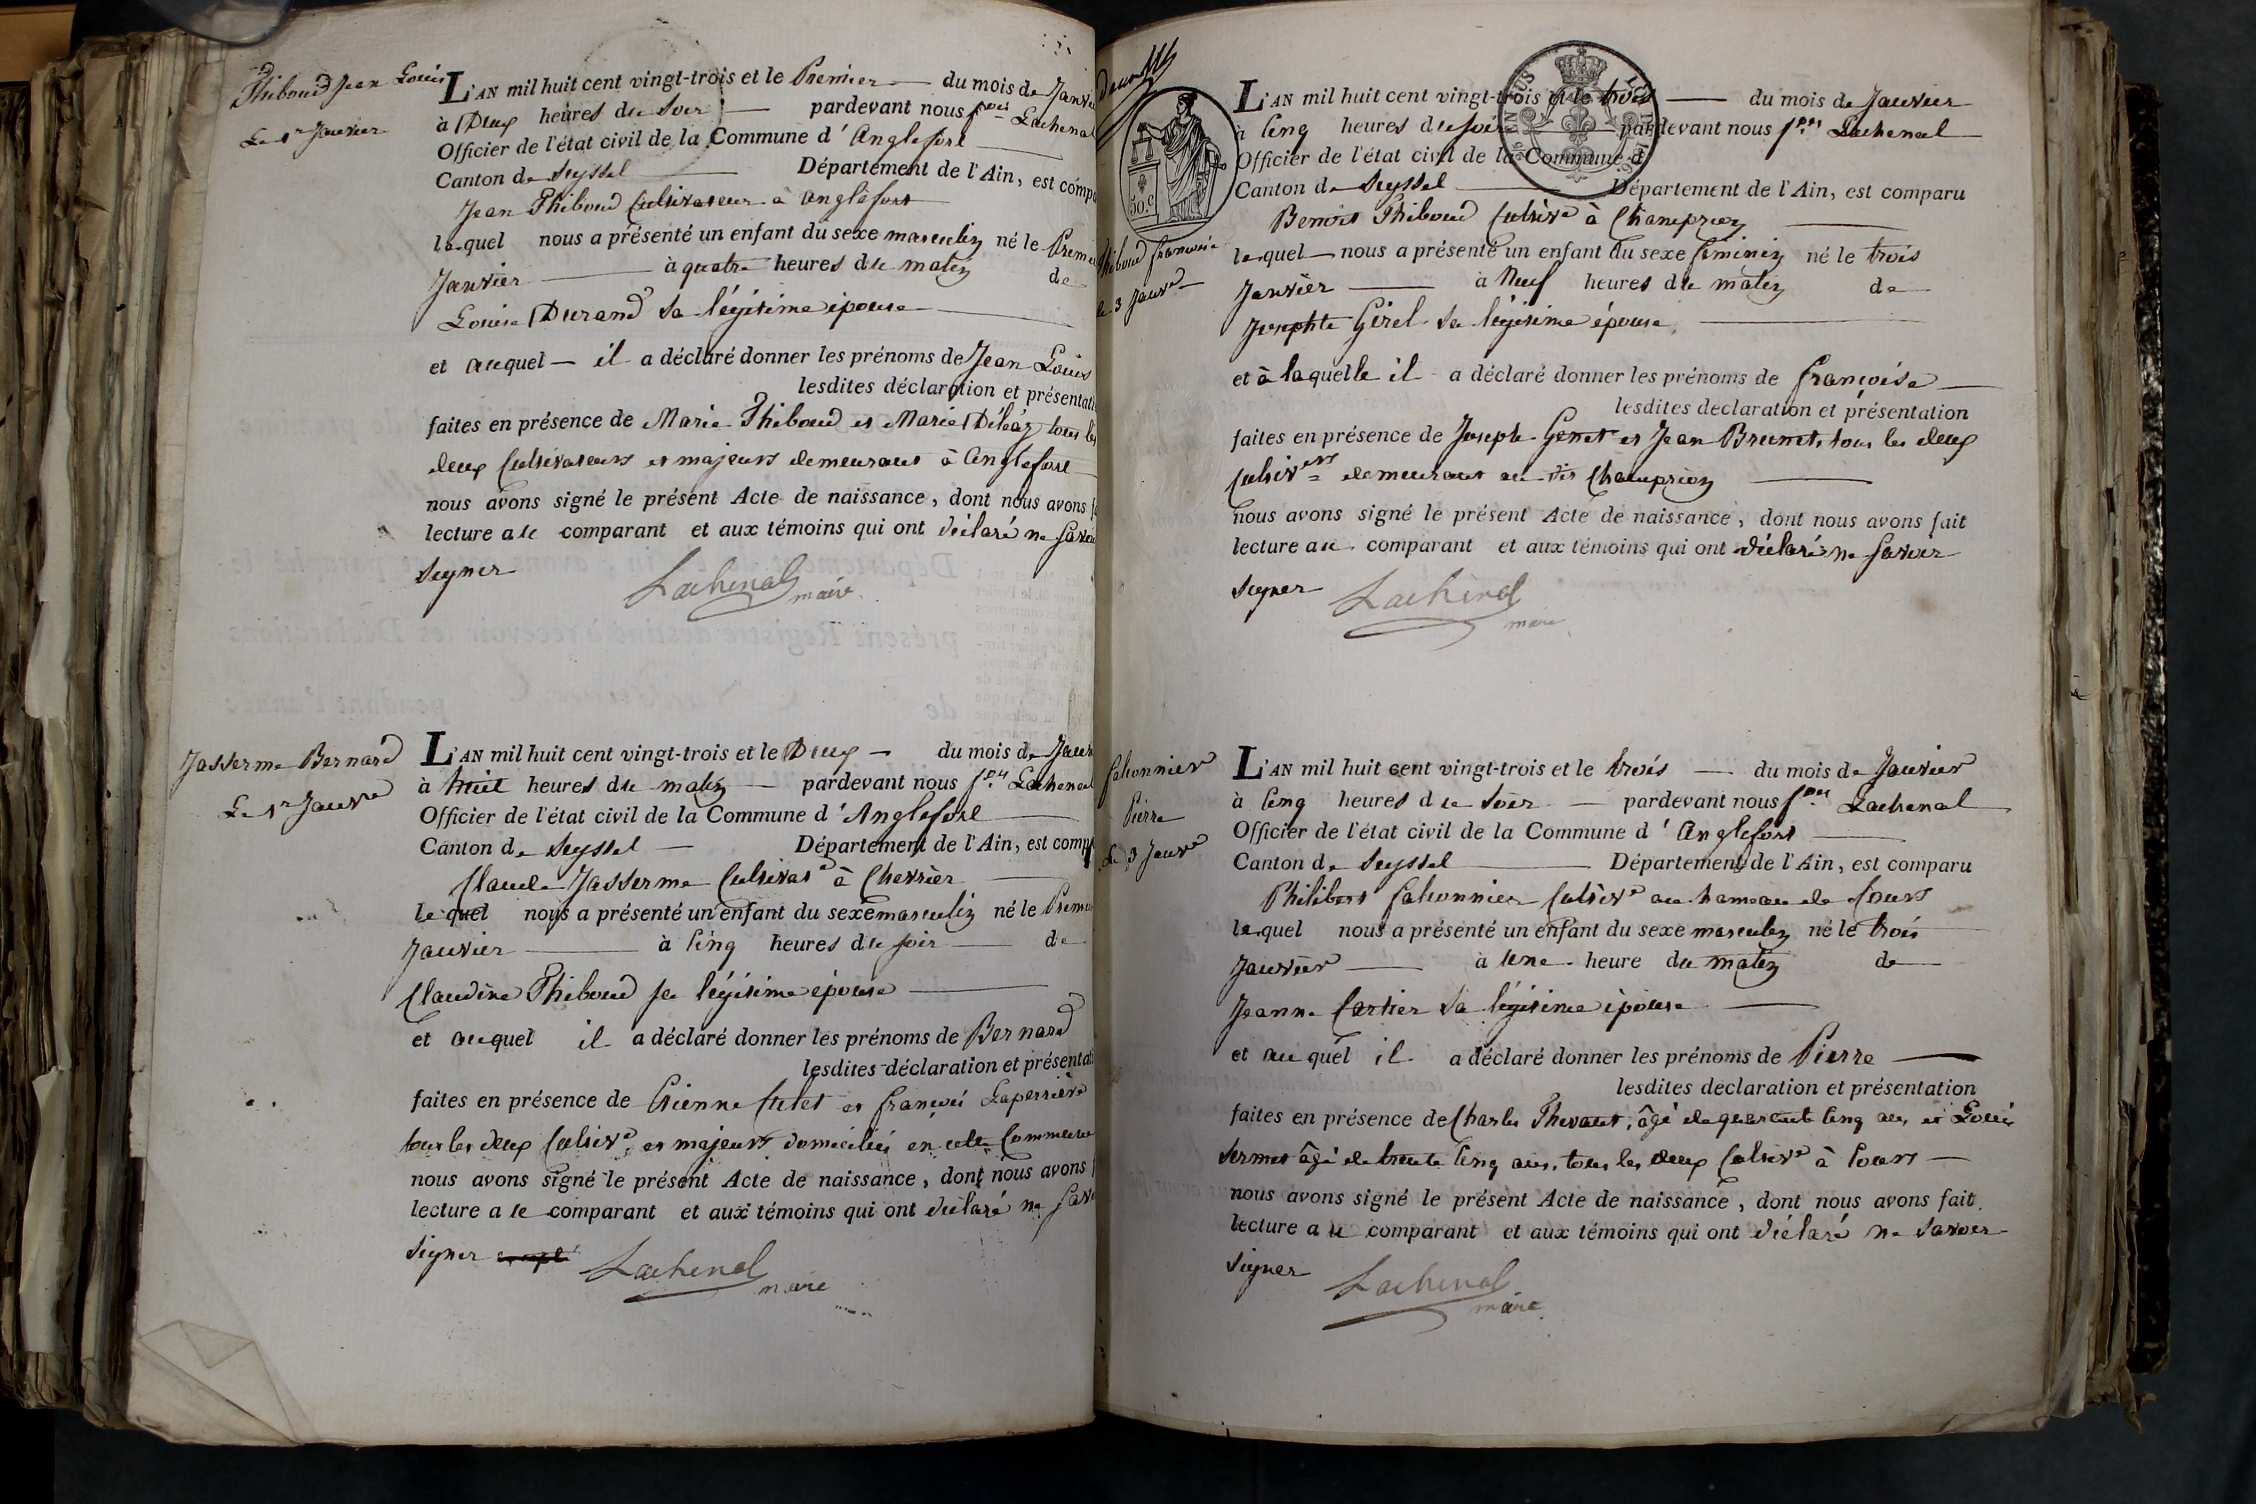 Thiboud Jean Louis
Le 1r Janvier
L'AN mil huit cent vingt-trois et le Premier du mois de Janvie
à Deux heures du soir pardevant nous fçois Lachenal
Officier de l'état civil de la Commune d'Anglefort
Canton de Seyssel Département de l'Ain, est compa
Jean Thiboud Cultivateur à Anglefort
lequel nous a présenté un enfant du sexe masculin né le Premie
Janvier à quatre heures du matin de
Louise Durand sa légitime épouse
et auquel il a déclaré donner les prénoms de Jean Louis
lesdites déclaration et présentati
faites en présence de Marie Thiboud et Marie Déléaz tous les
deux Cultivateurs et majeurs demeurant à Anglefort
nous avons signé le présent Acte de naissance, dont nous avons f
lecture au comparant et aux témoins qui ont déclaré ne savoi
signer
Lachenal maire
Jasserme Bernard
Le 1r Janvre
L'AN mil huit cent vingt-trois et le Deux du mois de Janv
à huit heures du matin pardevant nous fçois Lachenal
Officier de l'état civil de la Commune d'Anglefort
Canton de Seyssel Département de l'Ain, est comp
Claude Jasserme Cultivatr à Chevrier
lequel nous a présenté un enfant du sexe masculin né le Premie
Janvier à Cinq heures du soir de
Claudine Thiboud sa légitime épouse
et auquel il a déclaré donner les prénoms de Bernard
lesdites déclaration et présentat
faites en présence de Etienne Cutet et françois Laperrière
tous les deux Cultivr et majeurs domiciliés en cette Commune
nous avons signé le présent Acte de naissance, dont nous avons
lecture au comparant et aux témoins qui ont déclaré ne savo
signer
Lachenal
maire
50.c
Thiboud françoise
le 3 Janvr
L'AN mil huit cent vingt-trois et le trois du mois de Janvier
à Cinq heures du soir pardevant nous fçois Lachenal
Officier de l'état civil de la Commune d
Canton de Seyssel Département de l'Ain, est comparu
Benoit Thiboud Cultivr à Champriez
lequel nous a présenté un enfant du sexe féminin né le trois
Janvier à Neuf heures du matin de
Josephte Girel sa légitime épouse
et à laquelle il a déclaré donner les prénoms de françoise
lesdites declaration et présentation
faites en présence de Joseph Genet et Jean Brunet, tous les deux
Cultivrs demeurant au dit Champriez
nous avons signé le présent Acte de naissance, dont nous avons fait
lecture au comparant et aux témoins qui ont déclaré ne savoir
signer
Lachenal
maire
falconnier
Pierre
Le 3 Janvr
L'AN mil huit cent vingt-trois et le trois du mois de Janvier
à Cinq heures du soir pardevant nous fçois Lachenal
Officier de l'état civil de la Commune d'Anglefort
Canton de Seyssel Département de l'Ain, est comparu
Philibert falconnier Cultivr au hameau de Cours
lequel nous a présenté un enfant du sexe masculin né le trois
Janvier à Une heure du matin de
Jeanne Cartier sa légitime épouse
et au quel il a déclaré donner les prénoms de Pierre
lesdites declaration et présentation
faites en présence de Charles Thevenet, âgé de quarante Cinq ans et Louis
Sermet âgé de trente Cinq ans, tous les deux Cultivr à Cours
nous avons signé le présent Acte de naissance, dont nous avons fait
lecture au comparant et aux témoins qui ont déclaré ne savoir
signer
Lachenal
maire